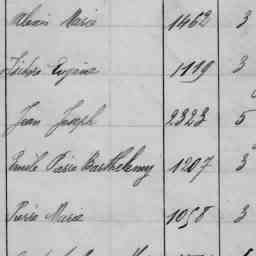 Alexis Marie 1462 3
Isidore Eugène 1119 3
Jean Joseph 2323 5
Emile Pierre Barthelemy 1207 3
Pierre Marie 1058 3